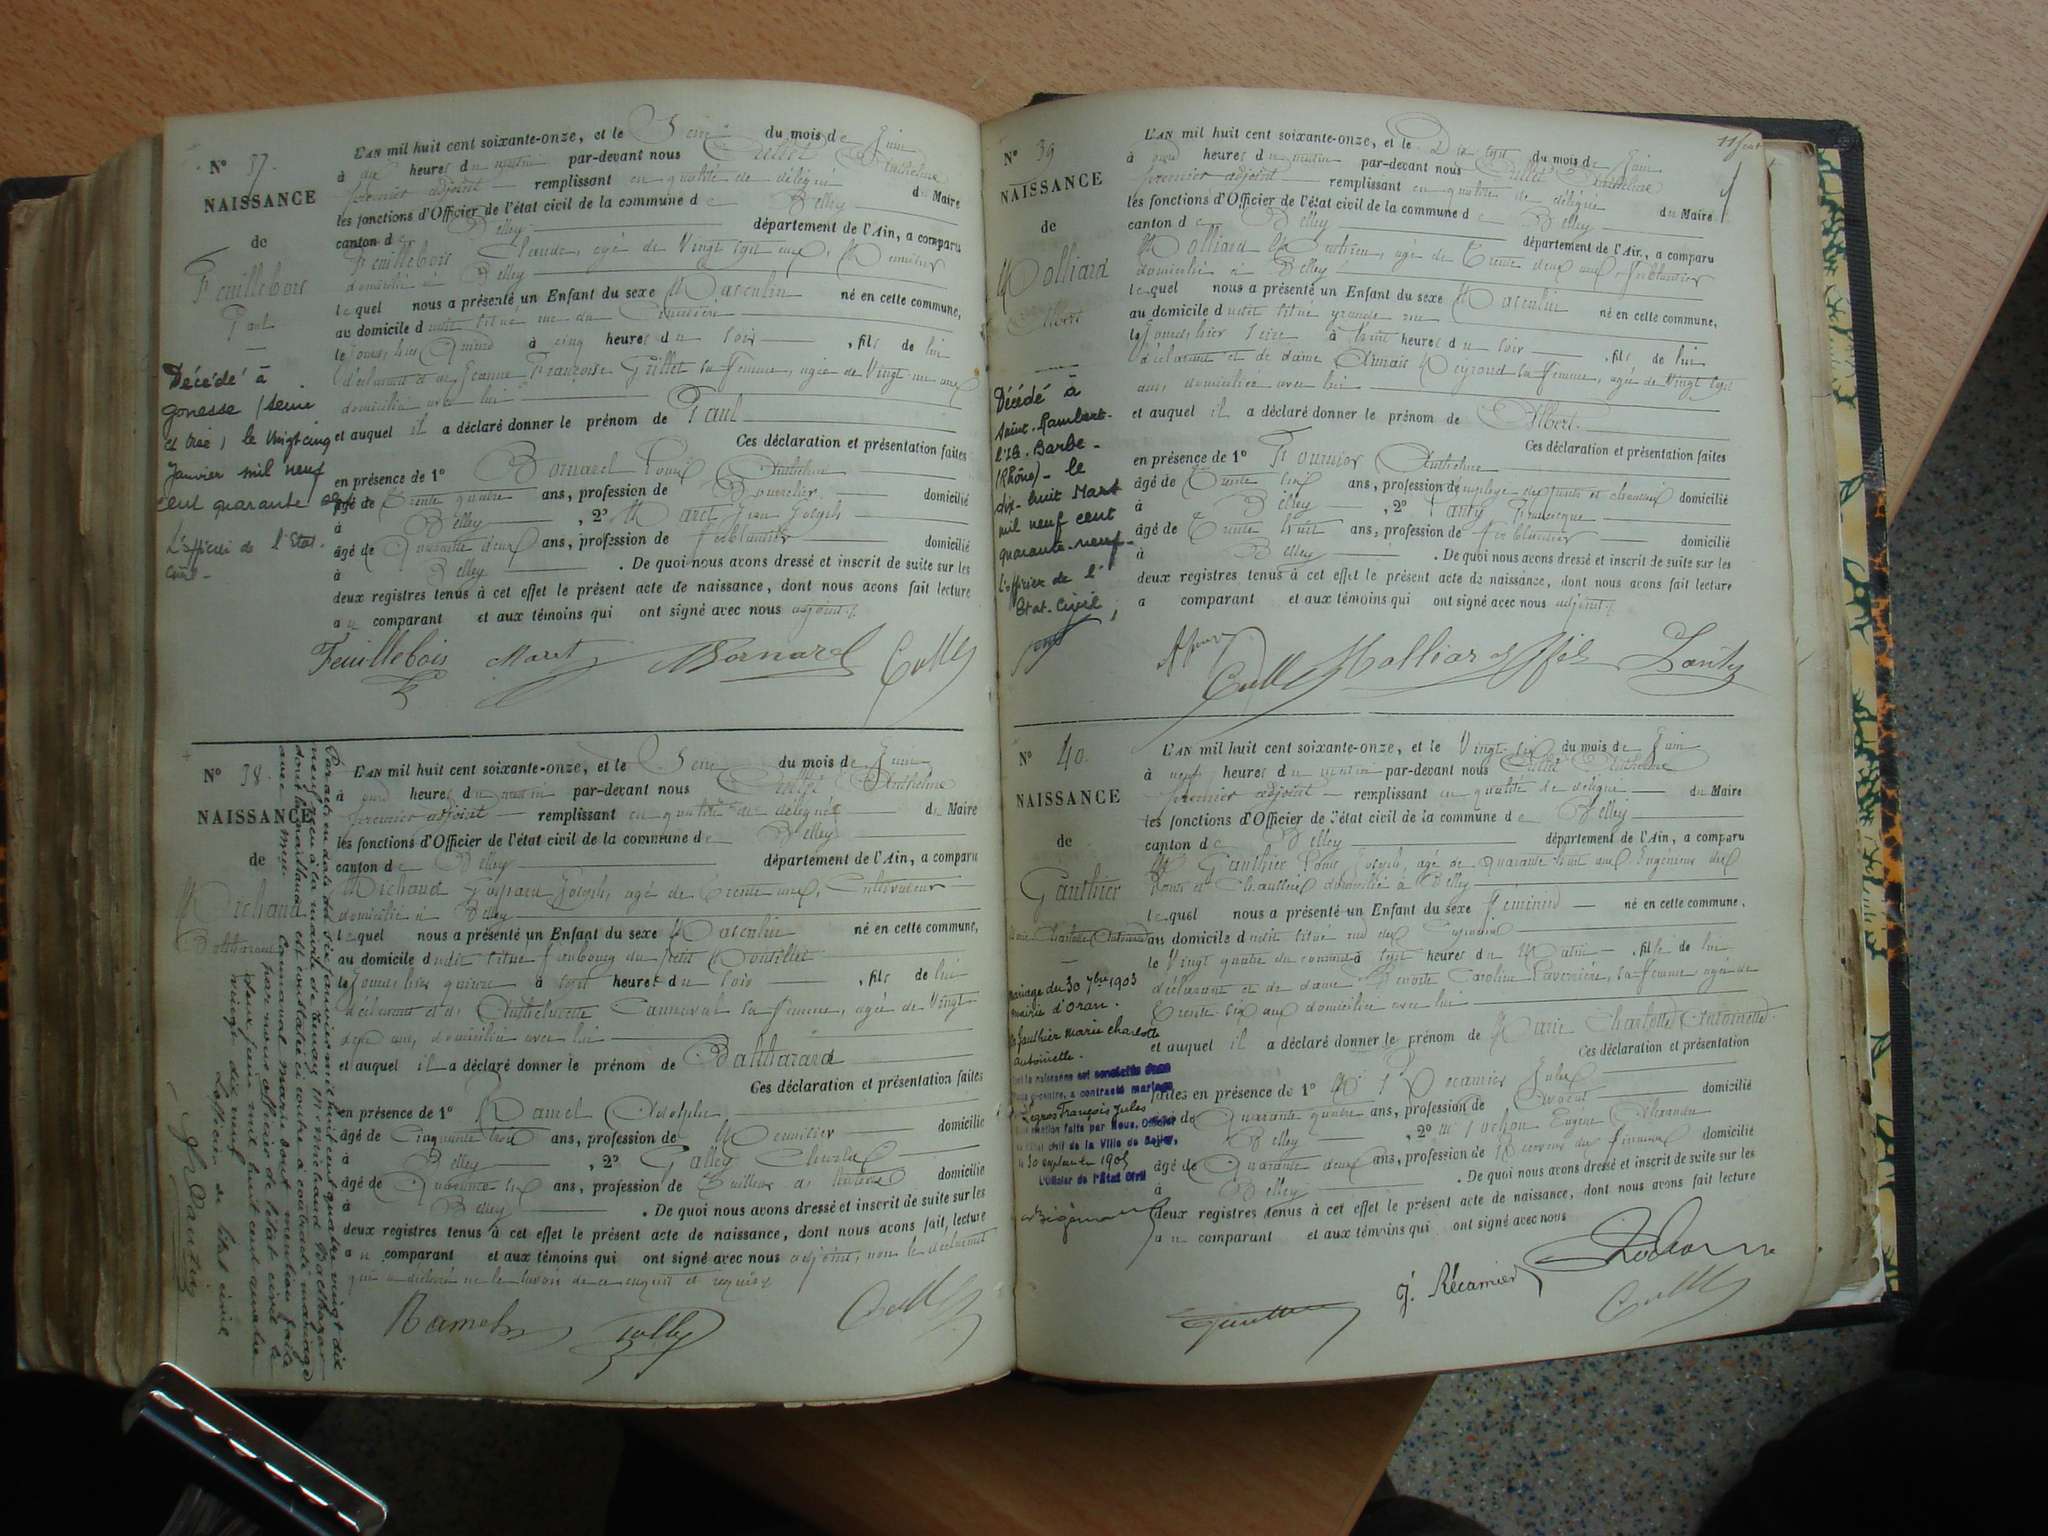 N° 37.
NAISSANCE
de
Feuillebois
Paul
Décédé à
gonesse (seine
et oise) le vingt cinq
Janvier mil neuf
cent quarante
L'officier de l'état
civil
L'AN mil huit cent soixante-onze, et le Seize du mois de Juin
à dix heures du matin par-devant nous Cullet Anthelme
premier adjoint remplissant en qualité de délégué du Maire
les fonctions d'Officier de l'état civil de la commune de Belley
canton de Belley département de l'Ain, a comparu
Feuillebois Claude, agé de Vingt sept ans, Menuisier
domicilié à Belley
lequel nous a présenté un Enfant du sexe Masculin né en cette commune,
au domicile dudit situé rue du
le jour d'hier Quinze à cinq heures du soir, fils de lui
déclarant et de Jeanne Françoise Guillet sa femme, agée de Vingt un ans
domiciliée avec lui
et auquel il a déclaré donner le prénom de Paul
Ces déclaration et présentation faites
en présence de 1° Bornarel Louis Anthelme
âgé de Trente quatre ans, profession de Bourrelier domicilié
à Belley, 2° Maret Jean Joseph
âgé de Quarante deux ans, profession de Ferblantier domicilié
à Belley. De quoi nous avons dressé et inscrit de suite sur les
deux registres tenus à cet effet le présent acte de naissance, dont nous avons fait lecture
au comparant et aux témoins qui ont signé avec nous adjoint.
Feuillebois Maret Bornarel Cullet
N° 38.
NAISSANCE
de
Michaud
Balthazard
L'AN mil huit cent soixante-onze, et le Seize du mois de Juin
à heures du matin par-devant nous Cullet Anthelme
premier adjoint remplissant en qualité de délégué du Maire
les fonctions d'Officier de l'état civil de la commune de Belley
canton de Belley département de l'Ain, a comparu
Michaud Gaspard Joseph, agé de Trente ans, Cultivateur
domicilié à Belley
lequel nous a présenté un Enfant du sexe Masculin né en cette commune,
au domicile dudit situé faubourg du
le jour d'hier quinze à sept heures du soir, fils de lui
déclarant et de Anthelmette Carnaval sa femme, agée de Vingt
ans, domiciliée avec lui
et auquel il a déclaré donner le prénom de Balthazard
Ces déclaration et présentation faites
en présence de 1° Ramel Adolphe
âgé de Cinquante trois ans, profession de Menuisier domicilié
à Belley, 2° Galley Charles
âgé de Quarante six ans, profession de Tailleur de domicilié
à Belley. De quoi nous avons dressé et inscrit de suite sur les
deux registres tenus à cet effet le présent acte de naissance, dont nous avons fait lecture
au comparant et aux témoins qui ont signé avec nous adjoint, non le déclarant
qui a déclaré ne le savoir de ce enquis et requis
Ramel Cullet
Par acte en date du dix janvier mil huit cent quatre vingt dix
neuf reçu à la mairie de Tenay, Mr Michaud Balthazar
dont la naissance est constatée ci contre a contracté mariage
avec Melle Carnaval Marie dont mention faite
par nous officier de l'état civil le
deux juin mil huit cent quatre
vingt dix neuf
L'officier de l'état civil
N° 39
NAISSANCE
de
Molliard
Albert
Décédé à
Saint-Rambert-
l'Ile-Barbe-
(Rhône)- le
dix-huit Mars
mil neuf cent
quarante-neuf-
L'officier de l'
Etat-Civil,
L'AN mil huit cent soixante-onze, et le Dix sept du mois de Juin
à heures du matin par-devant nous Cullet Anthelme
premier adjoint remplissant en qualité de délégué du Maire
les fonctions d'Officier de l'état civil de la commune de Belley
canton de Belley département de l'Ain, a comparu
Molliard agé de Trente deux ans, ferblantier
domicilié à Belley
lequel nous a présenté un Enfant du sexe Masculin né en cette commune,
au domicile dudit situé grande rue
le jour d'hier Seize à huit heures du soir, fils de lui
déclarant et de dame Anaïs Peyrond sa femme, agée de Vingt sept
ans, domiciliée avec lui
et auquel il a déclaré donner le prénom de Albert.
Ces déclaration et présentation faites
en présence de 1° Fournier Anthelme
âgé de Trente ans, profession d'employé des ponts et chaussées domicilié
à Belley, 2° Lanty Francisque
âgé de Trente huit ans, profession de Ferblantier domicilié
à Belley. De quoi nous avons dressé et inscrit de suite sur les
deux registres tenus à cet effet le présent acte de naissance, dont nous avons fait lecture
a comparant et aux témoins qui ont signé avec nous adjoint.
Cullet Molliard fils Lanty
N° 40.
NAISSANCE
de
Gauthier
Marie Charlotte Antoinette
mariage du 30 7bre 1903
mairie d'Oran.
Gauthier marie charlotte
antoinette.
dont la naissance est constatée dans
l'acte ci-contre, a contracté mariage
Legros François Jules
mention faite par Nous, Officier
de l'Etat civil de la Ville de Belley,
L'Officier de l'Etat Civil
L'AN mil huit cent soixante-onze, et le Vingt-six du mois de Juin
à neuf heures du matin par-devant nous Cullet Anthelme
premier adjoint remplissant en qualité de délégué du Maire
les fonctions d'Officier de l'état civil de la commune de Belley
canton de Belley département de l'Ain, a comparu
Mr Gauthier Louis Joseph, agé de quarante huit ans Ingénieur des
Ponts et Chaussées domicilié à Belley
lequel nous a présenté un Enfant du sexe féminin né en cette commune,
au domicile dudit situé rue des
le Vingt quatre du courant à sept heures du Matin, fille de lui
déclarant et de dame Benoite Caroline sa femme agée de
Trente six ans domiciliée avec lui
et auquel il a déclaré donner le prénom de Marie Charlotte Antoinette.
Ces déclaration et présentation
faites en présence de 1° Mr Récamier Jules domicilié
âgé de Quarante quatre ans, profession de Avocat
à Belley, 2° Mr Rochon Eugène Alexandre
âgé de Quarante deux ans, profession de Receveur des finances domicilié
à Belley. De quoi nous avons dressé et inscrit de suite sur les
deux registres tenus à cet effet le présent acte de naissance, dont nous avons fait lecture
au comparant et aux témoins qui ont signé avec nous
J. Récamier
Gauthier Cullet